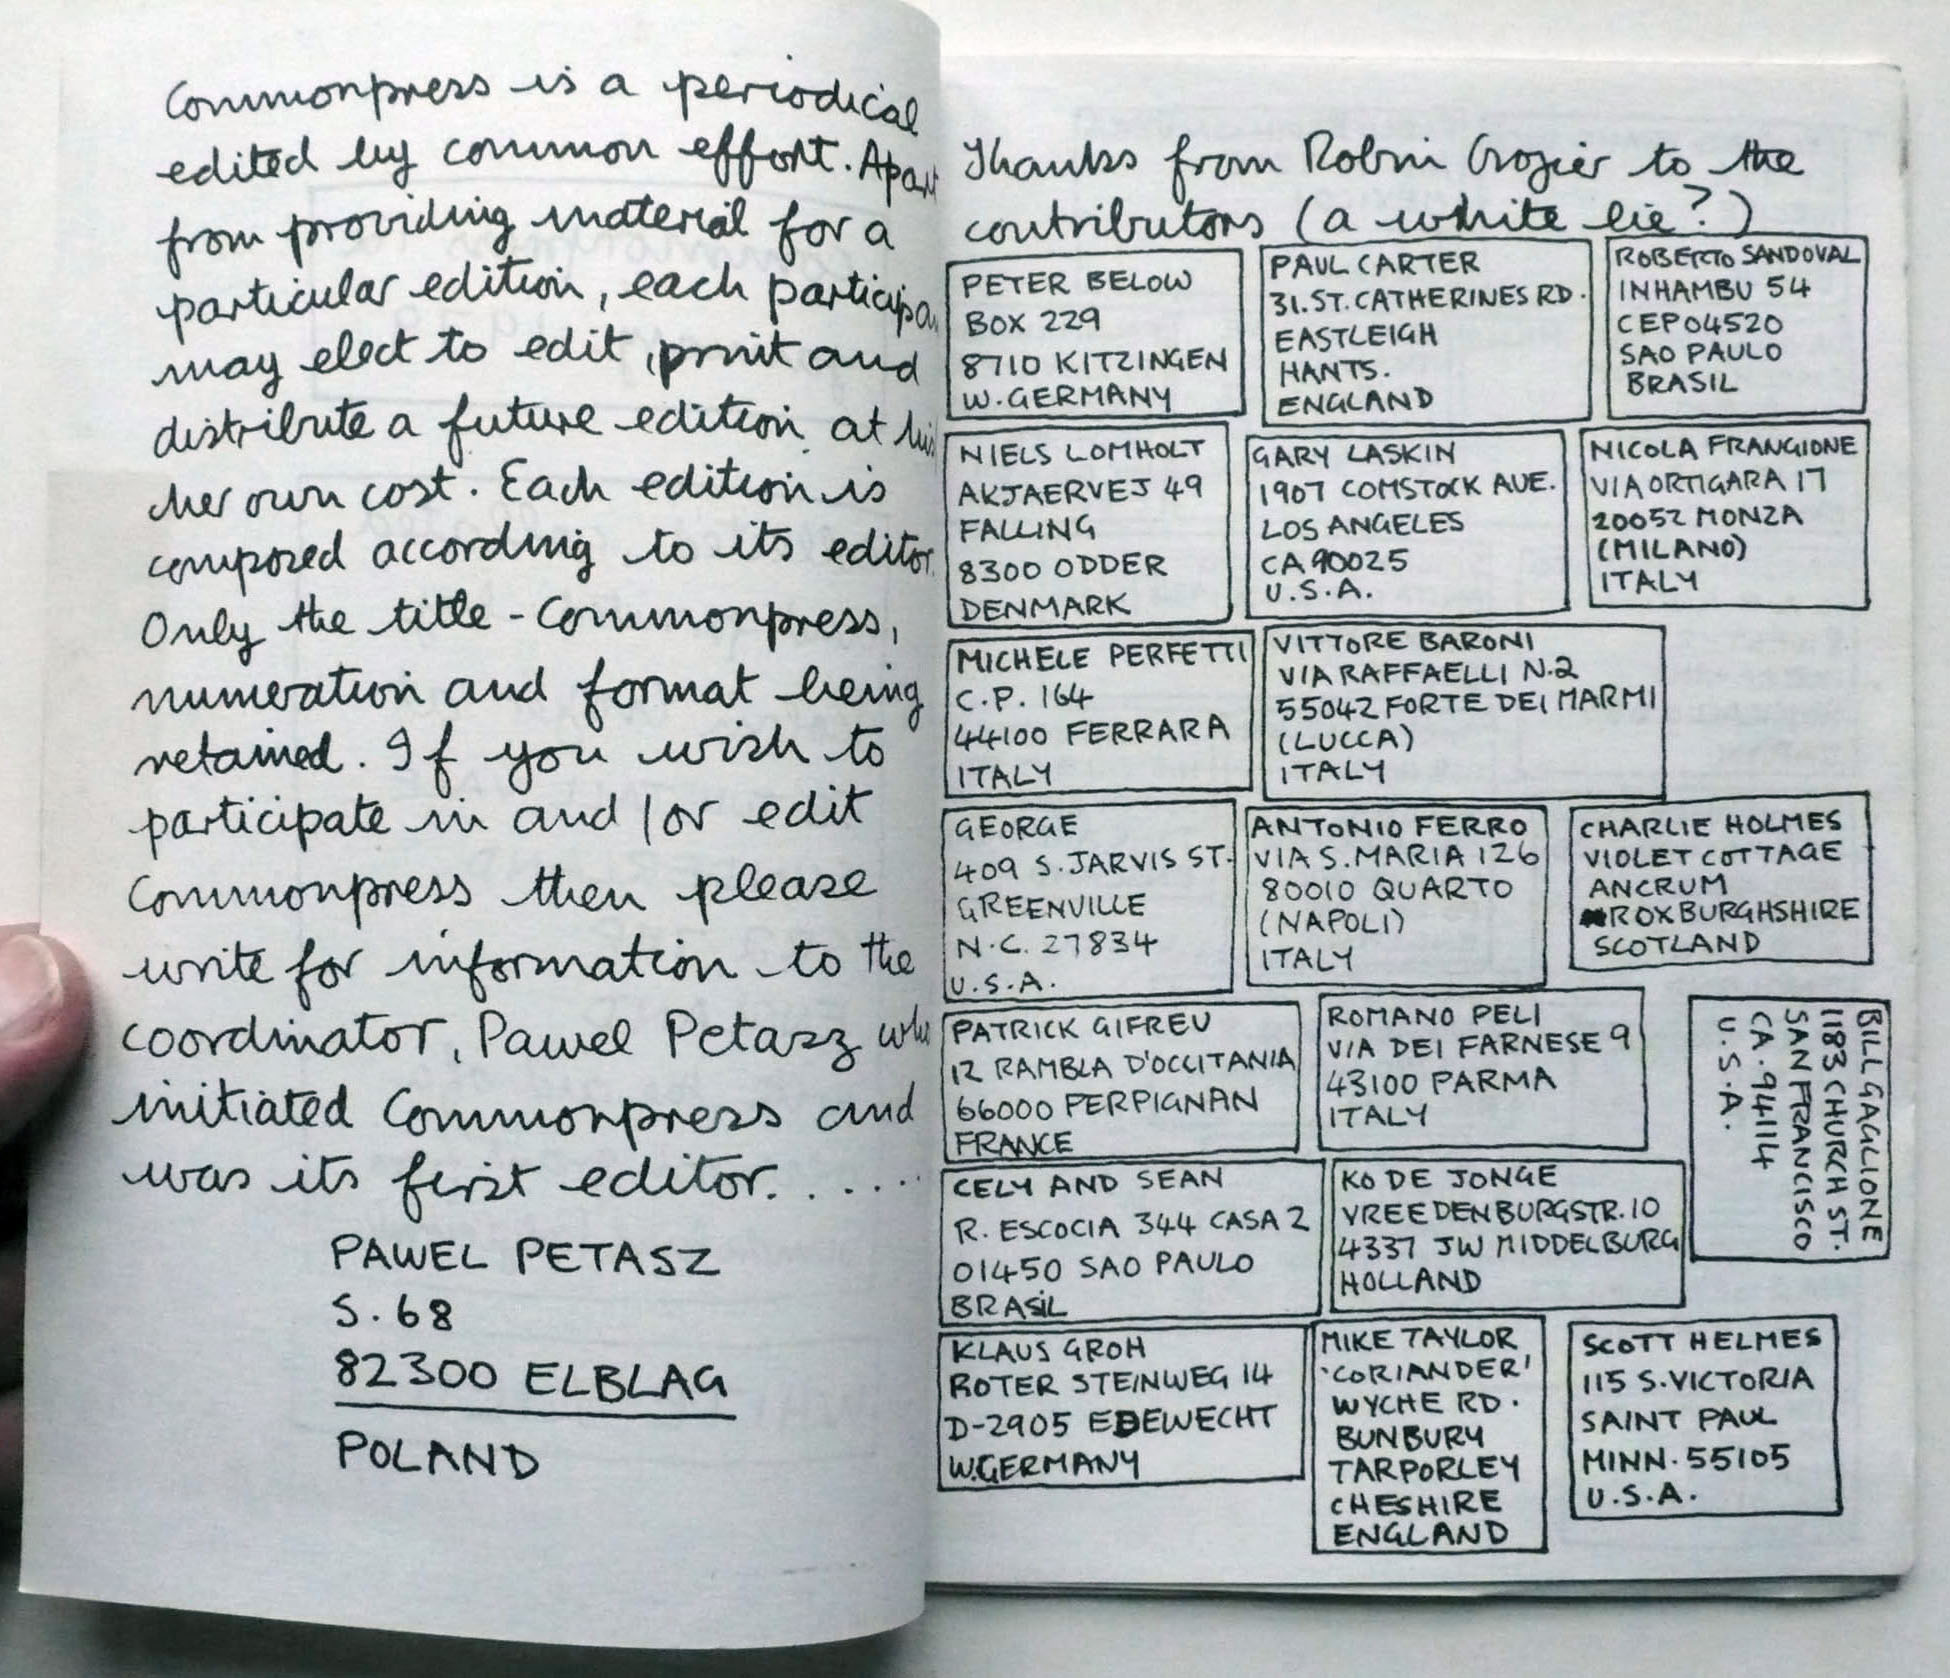 Commonpress is a periodical
edited by common effort. Apart
from providing material for a
particular edition, each participa
may elect to edit, print and
distribute a future edition at his
her own cost. Each edition is
composed according to its editor.
Only the title - Commonpress,
numeration and format being
retained. If you wish to
participate in and/or edit
Commonpress then please
write for information to the
coordinator, Pawel Petasz who
initiated Commonpress and
was its first editor. . . . .
PAWEL PETASZ
S. 68
82300 ELBLAG
POLAND
Thanks from Robin Crozier to the
contributors (a white lie?)
PETER BELOW
BOX 229
8710 KITZINGEN
W. GERMANY
PAUL CARTER
31. ST. CATHERINES RD.
EASTLEIGH
HANTS.
ENGLAND
ROBERTO SANDOVAL
INHAMBU 54
CEP 04520
SAO PAULO
BRASIL
NIELS LOMHOLT
AKJAERVEJ 49
FALLING
8300 ODDER
DENMARK
GARY LASKIN
1907 COMSTOCK AVE.
LOS ANGELES
CA 90025
U.S.A.
NICOLA FRANGIONE
VIA ORTIGARA 17
20052 MONZA
(MILANO)
ITALY
MICHELE PERFETTI
C.P. 164
44100 FERRARA
ITALY
VITTORE BARONI
VIA RAFFAELLI N.2
55042 FORTE DEI MARMI
(LUCCA)
ITALY
GEORGE
409 S. JARVIS ST.
GREENVILLE
N.C. 27834
U.S.A.
ANTONIO FERRO
VIA S. MARIA 126
80010 QUARTO
(NAPOLI)
ITALY
CHARLIE HOLMES
VIOLET COTTAGE
ANCRUM
ROXBURGHSHIRE
SCOTLAND
PATRICK GIFREU
12 RAMBLA D'OCCITANIA
66000 PERPIGNAN
FRANCE
ROMANO PELI
VIA DEI FARNESE 9
43100 PARMA
ITALY
BILL GAGLIONE
1183 CHURCH ST.
SAN FRANCISCO
CA. 94114
U.S.A.
CELY AND SEAN
R. ESCOCIA 344 CASA 2
01450 SAO PAULO
BRASIL
KO DE JONGE
VREEDENBURGSTR. 10
4337 JW MIDDELBURG
HOLLAND
KLAUS GROH
ROTER STEINWEG 14
D-2905 EDEWECHT
W. GERMANY
MIKE TAYLOR
'CORIANDER'
WYCHE RD.
BUNBURY
TARPORLEY
CHESHIRE
ENGLAND
SCOTT HELMES
115 S. VICTORIA
SAINT PAUL
MINN. 55105
U.S.A.